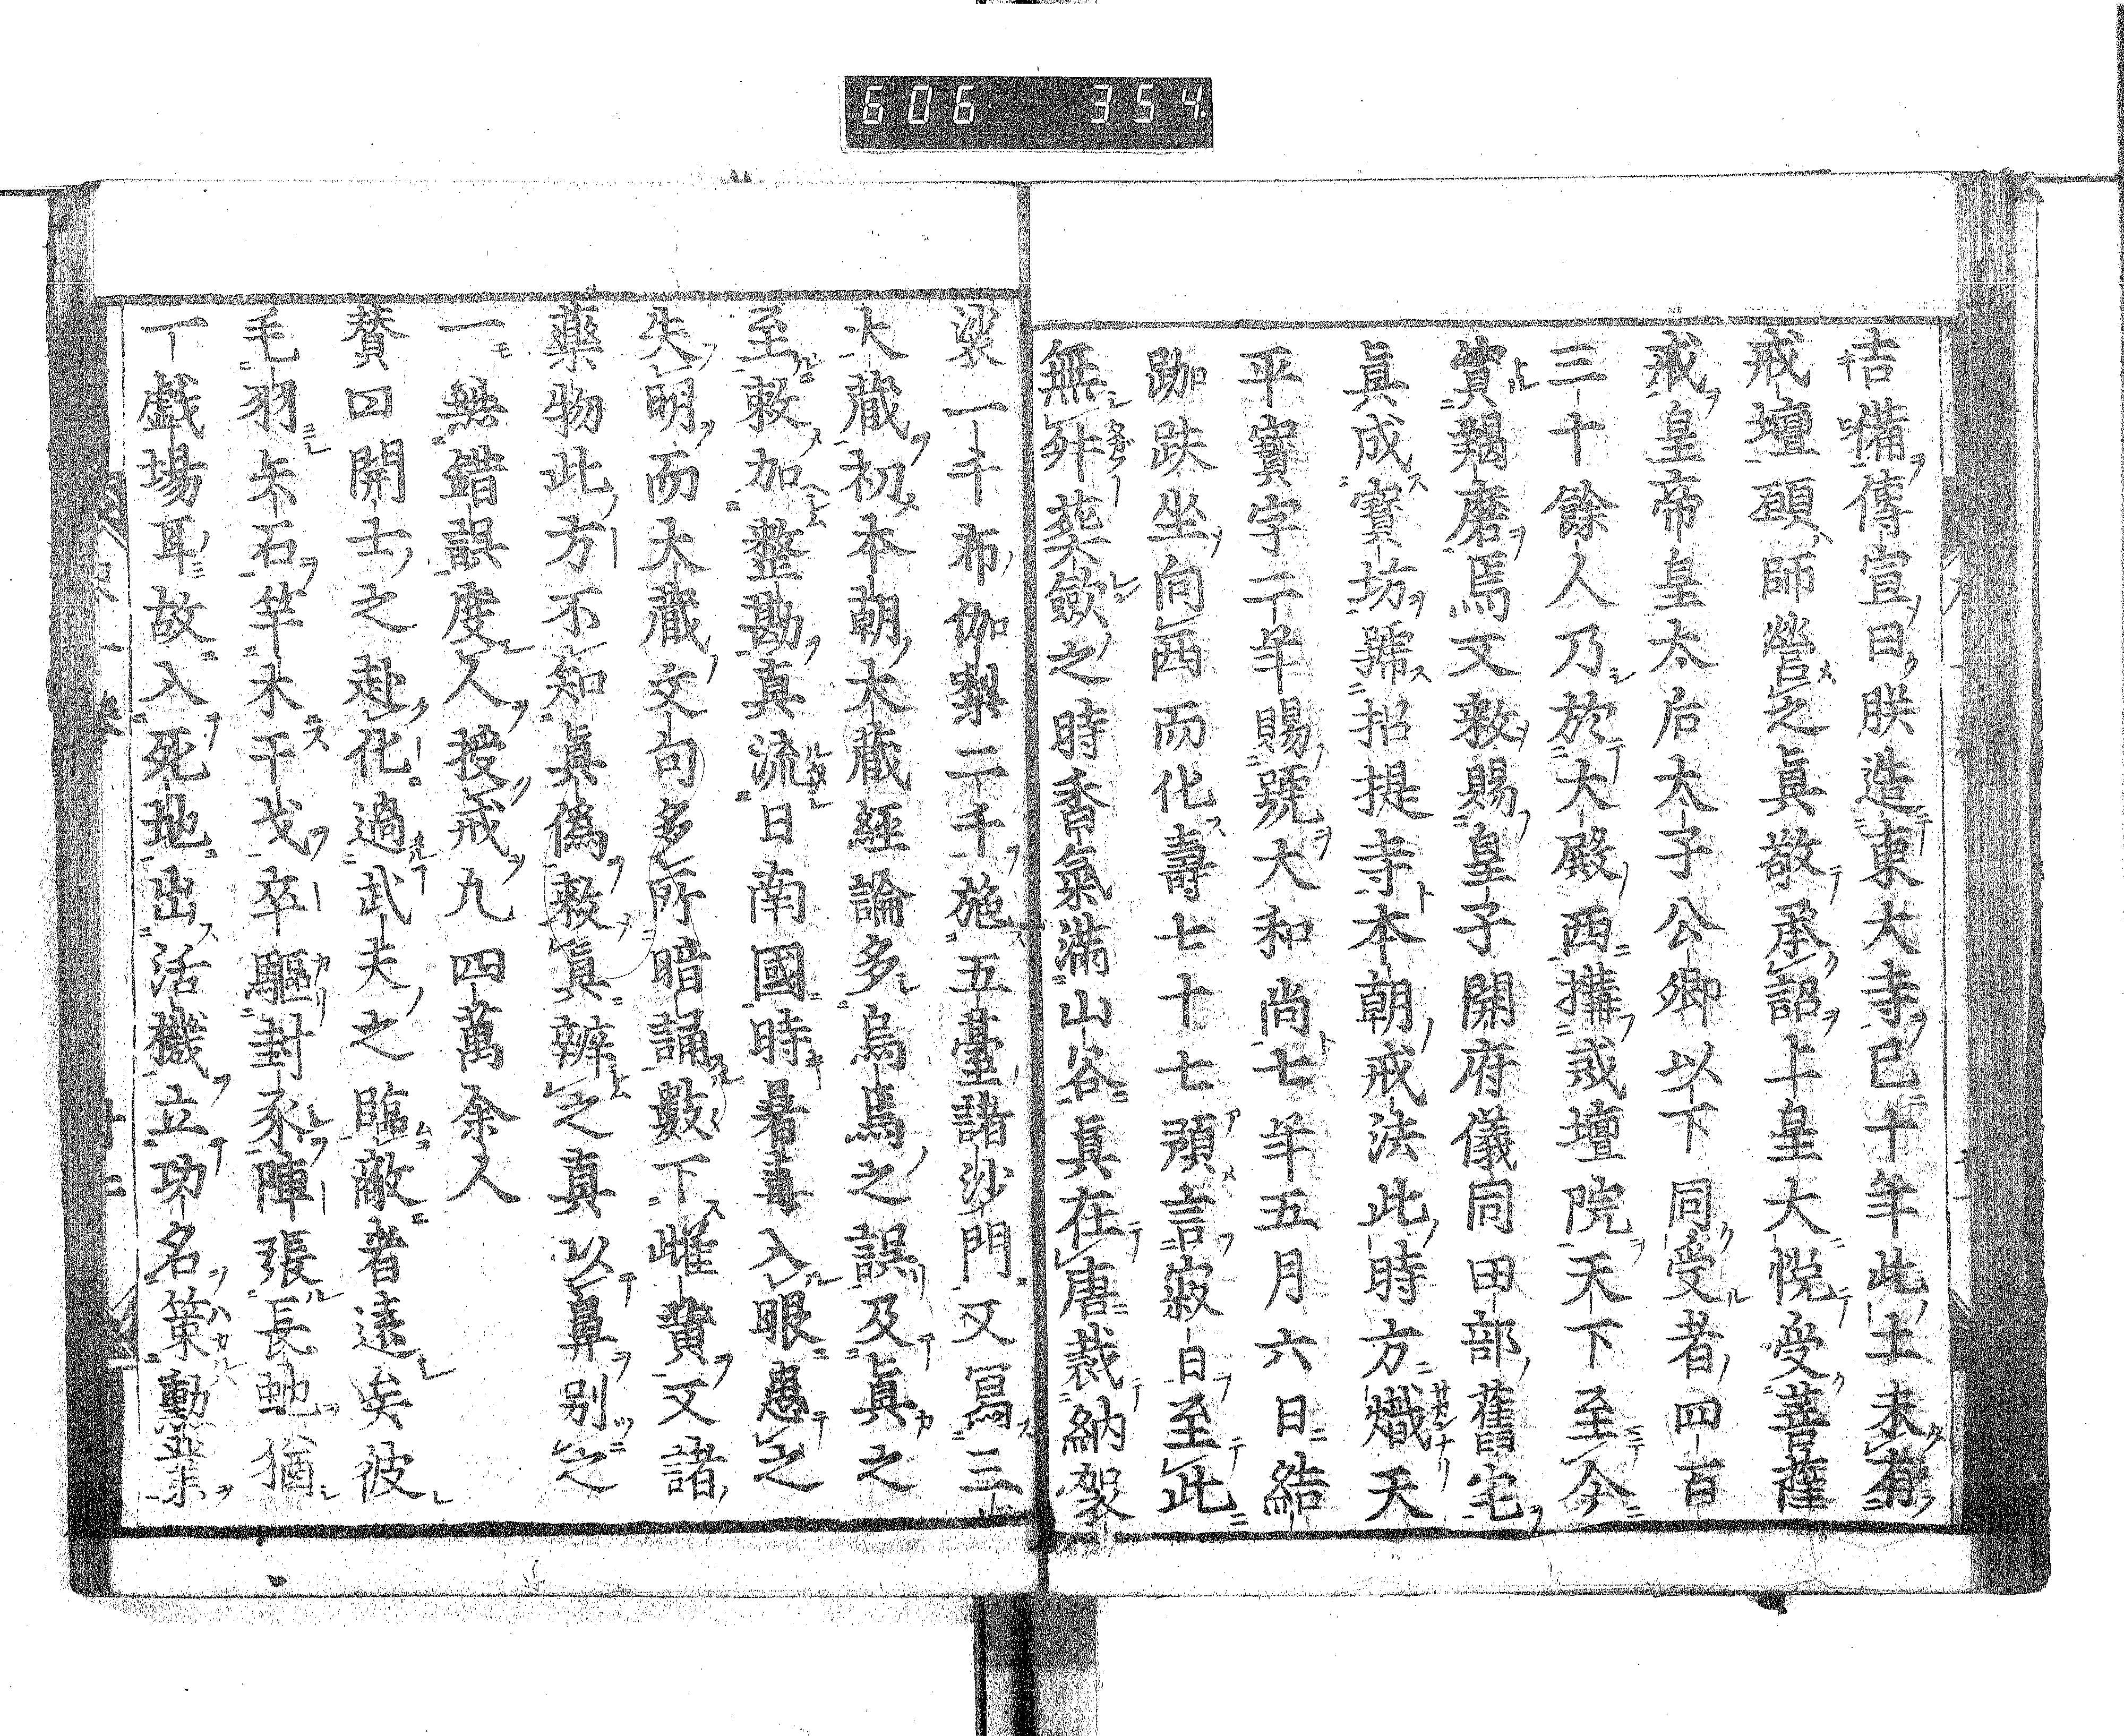 606 354
吉備傳宣曰朕造東大寺已十年此土未有
戒壇願師營之眞敬承詔上皇大悅受菩薩
戒皇帝皇太后太子公卿以下同受者四百
三十餘人乃於大殿西搆戒壇院天下至今
賞羯磨焉又敕賜皇子開府儀同田部舊宅
眞成寳坊號招提寺本朝戒法此時方熾天
平寳字二年賜號大和尚七年五月六日結
跏趺坐向西而化壽七十七預言寂日至此
無舛葬歛之時香氣滿山谷眞在唐裁納袈
裟一千布伽梨二千施五臺諸沙門又寫三
大藏初本朝大藏經論多烏焉之誤及眞之
至敕加整勘真流日南國時暑毒入眼患之
失明而大藏文句多所暗誦數下雌黃又諸
藥物此方不知眞僞敕眞辨之真以鼻别之
一無錯誤度人授戒九四萬余人
賛曰開士之赴化過武夫之臨敵者遠矣彼
毛羽矢石竿木干戈卒驅封豕陣張長虵猶
一戲場耳故入死地出活機立功名策勳業